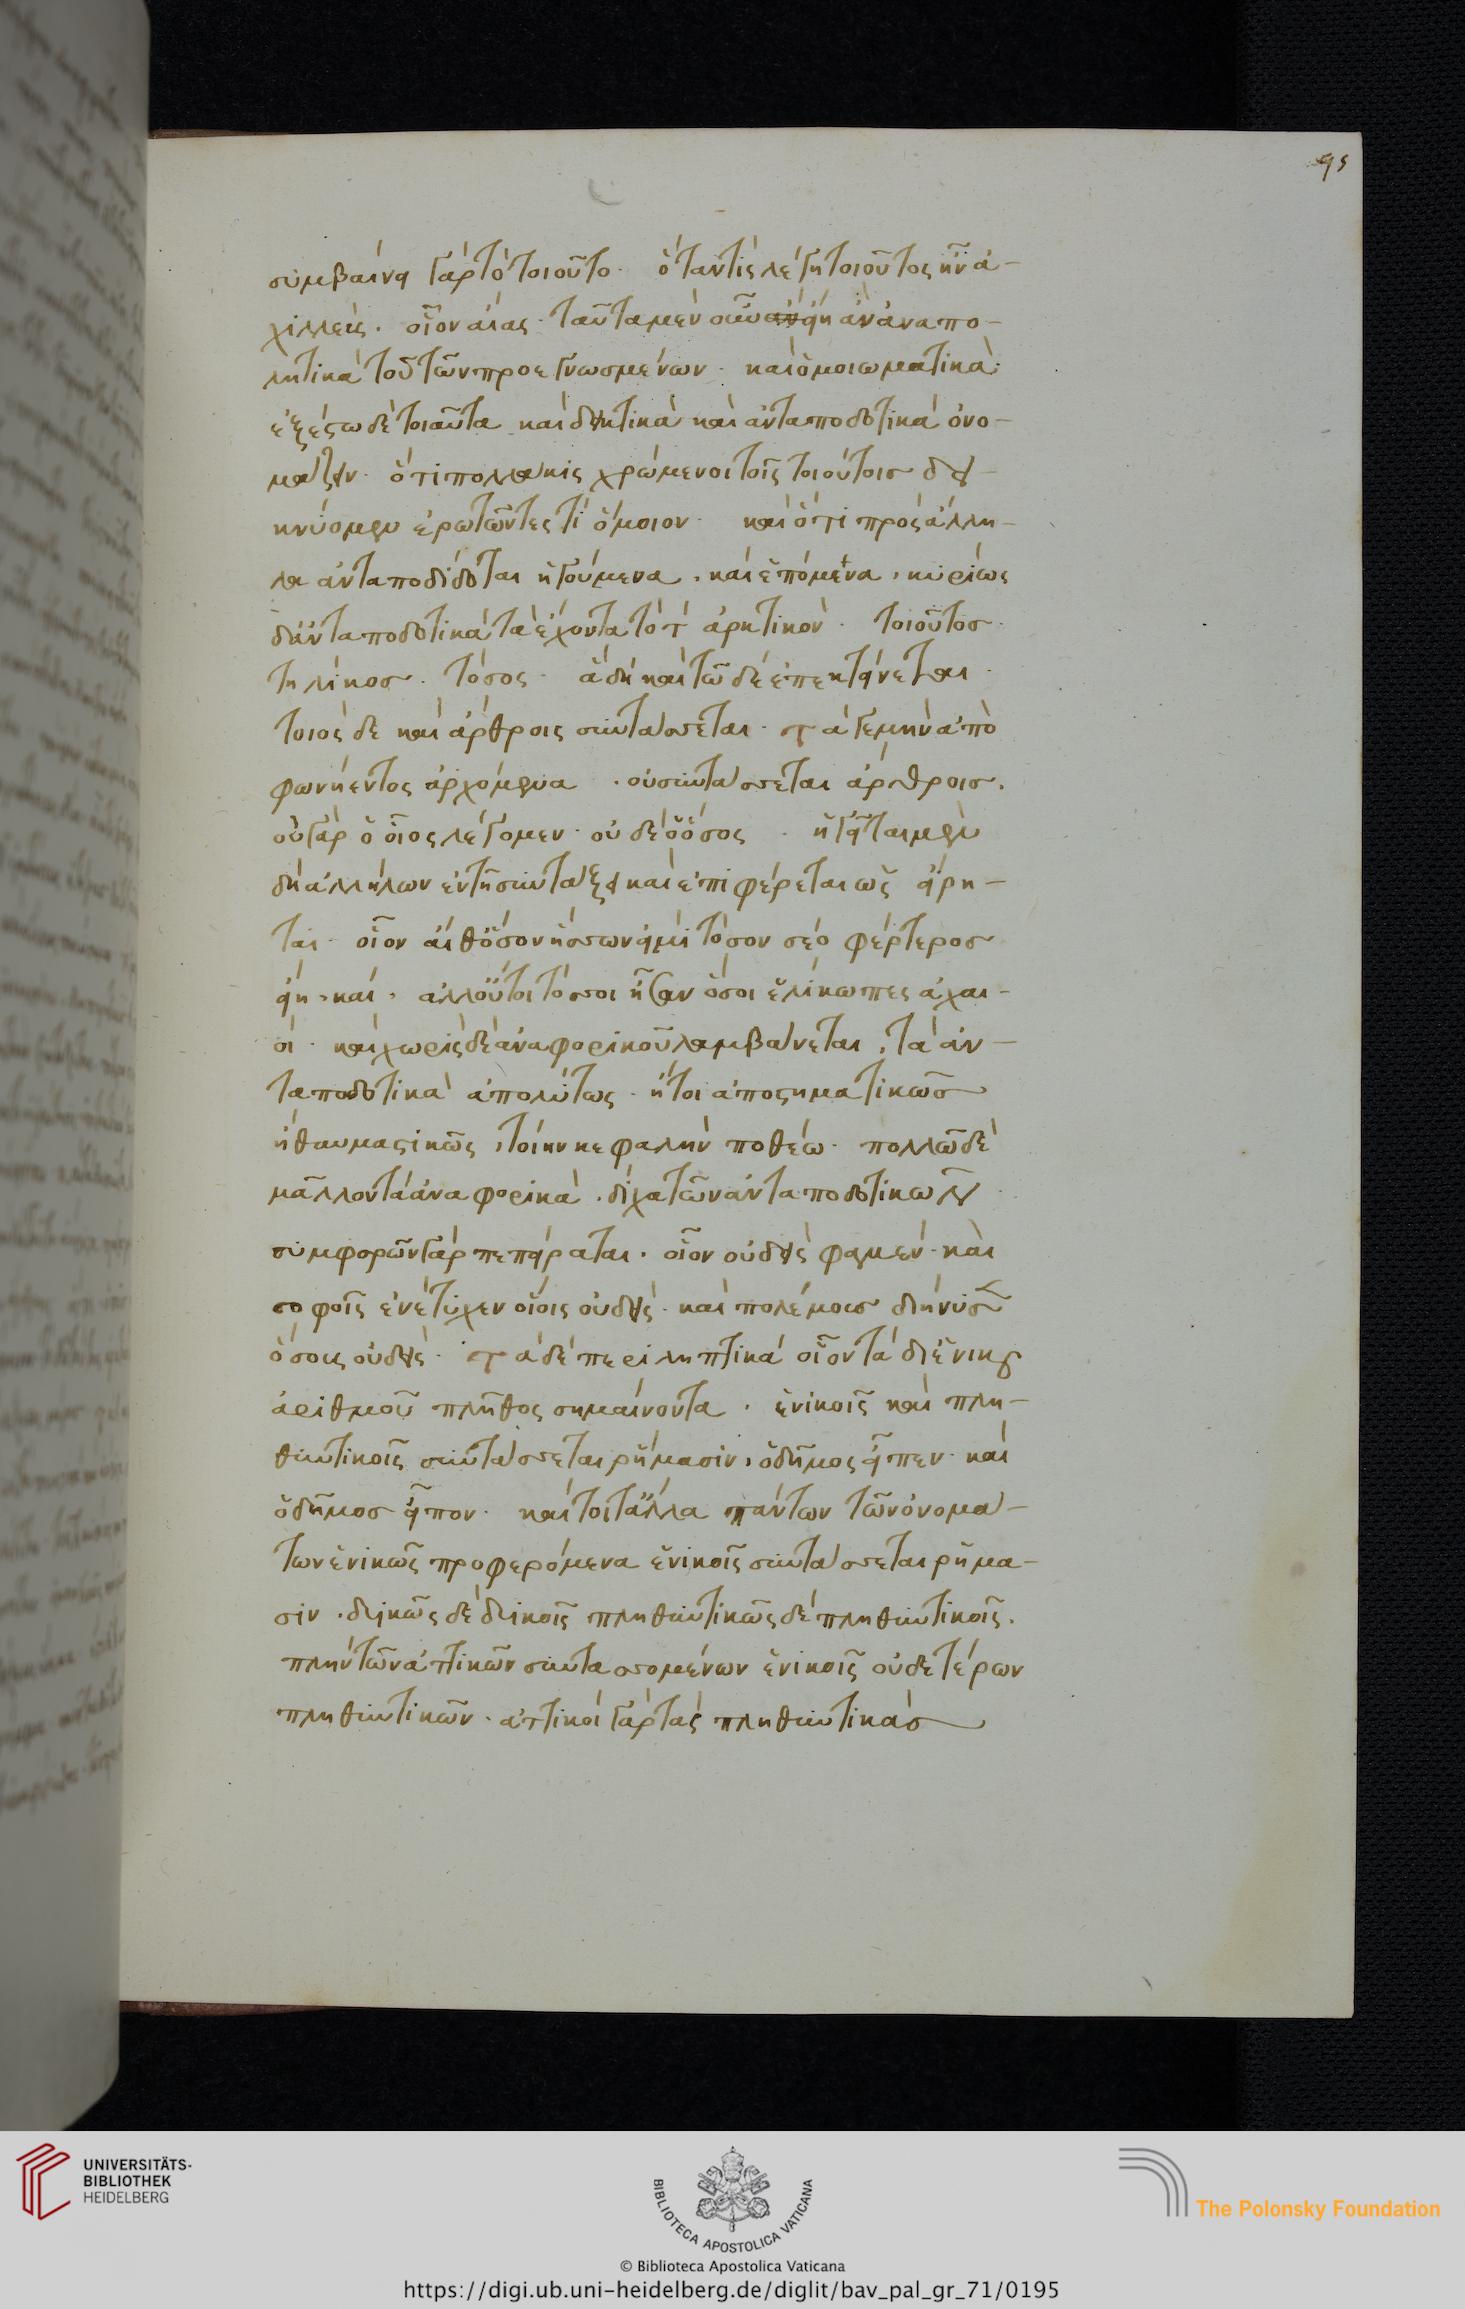 95
συμβαίνει γὰρ τὸ τοιοῦτο. ὅταν τὶς λέγη τοιοῦτος ἦν ἀ-
χιλλεὺς. οἷον αἴας. ταῦτα μὲν οὖν εἴη ἂν ἀναπο-
λητικὰ τοῦ τῶν προεγνωσμένων. καὶ ὁμοιωματικὰ.
ἐξέστω δὲ τοιαῦτα καὶ δεικτικὰ καὶ ἀνταποδοτικὰ ὀνο-
μάζειν. ὅτι πολλάκις χρώμενοι τοῖς τοιούτοις δει-
κνύομεν ἐρωτῶντες τί ὅμοιον. καὶ ὅτι πρὸς ἄλλη-
λα ἀνταποδίδοται ἡγούμενα, καὶ ἑπόμενα, κυρίως
δ' ἀνταποδοτικὰ τὰ ἔχοντα τὸ τ ἀρκτικὸν. τοιοῦτος.
τηλίκος. τόσος. ἃ δὴ καὶ τῶ δὲ ἐπεκτείνεται.
τοιὸς δὲ καὶ ἄρθροις συντάσσεται. τά γε μὴν ἀπὸ
φωνήεντος ἀρχόμενα . οὐ συντάσσεται ἄρθροις.
οὐ γὰρ ὁ οἷος λέγομεν. οὐ δὲ ὁ ὅσος . ἡγεῖται μὲν
δὴ ἀλλήλων ἐν τῆ συντάξει καὶ ἐπιφέρεται ὡς εἴρη-
ται. οἷον αἴθ' ὅσον ἥσσων εἰμὶ τόσον σέο φέρτερος
εἴη. καὶ. ἀλλ' οὔτοι τόσσοι ἦσαν ὅσοι ἑλίκωπες ἀχαι-
οί. καὶ χωρὶς δὲ ἀναφορικοῦ λαμβάνεται, τὰ ἀν-
ταποδοτικὰ ἀπολύτως. ἤτοι ἀποστηματικῶς
ἢ θαυμαστικῶς, τοίην κεφαλὴν ποθέω. πολλῶ δὲ
μᾶλλον τὰ ἀναφορικὰ. δίχα τῶν ἀνταποδοτικῶν
συμφορῶν γὰρ πεπείραται. οἷον οὐδεὶς φαμεν. καὶ
σοφοῖς ἐνέτυχεν οἵοις οὐδεὶς. καὶ πολέμους διήνυσεν
ὅσους οὐδεὶς. τὰ δὲ περιληπτικὰ οἷον τὰ δι' ἑνικοῦ
ἀριθμοῦ πλῆθος σημαίνοντα. ἑνικοῖς καὶ πλη-
θυντικοῖς συντάσσεται ῥήμασιν, ὁ δῆμος εἶπεν. καὶ
ὁ δῆμος εἶπον. καί τοι τἄλλα πάντων τῶν ὀνομά-
των ἑνικῶς προφερόμενα ἑνικοῖς συντάσσεται ῥήμα-
σιν. δυϊκῶς δὲ δυϊκοῖς πληθυντικῶς δὲ πληθυντικοῖς.
πλὴν τῶν ἀττικῶν συντασσομένων ἑνικοῖς οὐδετέρων
πληθυντικῶν. ἀττικοὶ γὰρ τὰς πληθυντικὰς
UNIVERSITÄTS-
BIBLIOTHEK
HEIDELBERG
BIBLIOTECA APOSTOLICA VATICANA
The Polonsky Foundation
© Biblioteca Apostolica Vaticana
https://digi.ub.uni-heidelberg.de/diglit/bav_pal_gr_71/0195